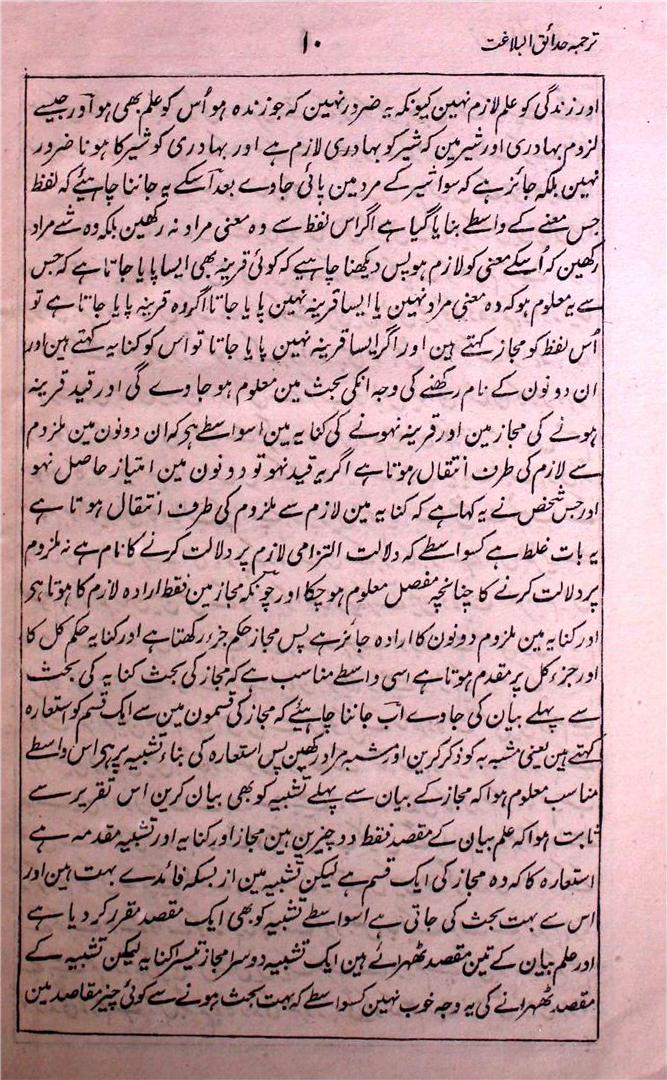 ترجمہ حدائق البلاغت
۱۰
اور زندگی کو علم لازم نہین کیونکہ یہ ضرور نہین کہ جو زندہ ہو اُس کو علم بھی ہو اور جیسے
لزوم بہادری اور شیر مین کہ شیر کو بہادری لازم ہے اور بہادری کو شیر کا ہونا ضرور
نہین بلکہ جائز ہے کہ سوا شیر کے مرد مین پائی جاوے بعد اسکے یہ جاننا چاہیئے کہ لفظ
جس معنے کے واسطے بنایا گیا ہے اگر اس لفظ سے وہ معنی مراد نہ رکھین بلکہ وہ شے مراد
رکھین کہ اُسکے معنی کو لازم ہو پس دیکھنا چاہیے کہ کوئی قرینہ بھی ایسا پایا جاتا ہے کہ جس
سے یہ معلوم ہو کہ وہ معنی مراد نہین یا ایسا قرینہ نہین پایا جاتا اگر وہ قرینہ پایا جاتا ہے تو
اُس لفظ کو مجاز کہتے ہین اور اگر ایسا قرینہ نہین پایا جاتا تو اس کو کنایہ کہتے ہین اور
ان دونون کے نام رکھنے کی وجہ انکی بحث مین معلوم ہو جاوے گی اور قید قرینہ
ہونے کی مجاز مین اور قرینہ نہونے کی کنایہ مین اسواسطے ہی کہ ان دونون مین ملزوم
سے لازم کی طرف انتقال ہوتا ہے اگر یہ قید نہو تو دونون مین امتیاز حاصل نہو
اور جس شخص نے یہ کہا ہے کہ کنایہ مین لازم سے ملزوم کی طرف انتقال ہوتا ہے
یہ بات غلط ہے کسواسطے کہ دلالت التزامی لازم پر دلالت کرنے کا نام ہے نہ ملزوم
پر دلالت کرنے کا چنانچہ مفصل معلوم ہو چکا اور چونکہ مجاز مین فقط ارادہ لازم کا ہوتا ہی
اور کنایہ مین ملزوم دونون کا ارادہ جائز ہے پس مجاز حکم جزء رکھتا ہے اور کنایہ حکم کل کا
اور جزء کل پر مقدم ہوتا ہے اسی واسطے مناسب ہے کہ مجاز کی بحث کنایہ کی بحث
سے پہلے بیان کی جاوے اب جاننا چاہیئے کہ مجاز کی قسمون مین سے ایک قسم کو استعارہ
کہتے ہین یعنی مشبہ بہ کو ذکر کرین اور مشبہ مراد رکھین پس استعارہ کی بناء تشبیہ پر ہی اس واسطے
مناسب معلوم ہوا کہ مجاز کے بیان سے پہلے تشبیہ کو بھی بیان کرین اس تقریر سے
ثابت ہوا کہ علم بیان کے مقصد فقط دو چیزین ہین مجاز اور کنایہ اور تشبیہ مقدمہ ہے
استعارہ کا کہ وہ مجاز کی ایک قسم ہے لیکن تشبیہ مین از بسکہ فائدے بہت ہین اور
اس سے بہت بحث کی جاتی ہے اسواسطے تشبیہ کو بھی ایک مقصد مقرر کر دیا ہے
اور علم بیان کے تین مقصد ٹھہرائے ہین ایک تشبیہ دوسرا مجاز تیسرا کنایہ لیکن تشبیہ کے
مقصد ٹھہرانے کی یہ وجہ خوب نہین کسواسطے کہ بہت بحث ہونے سے کوئی چیز مقاصد مین